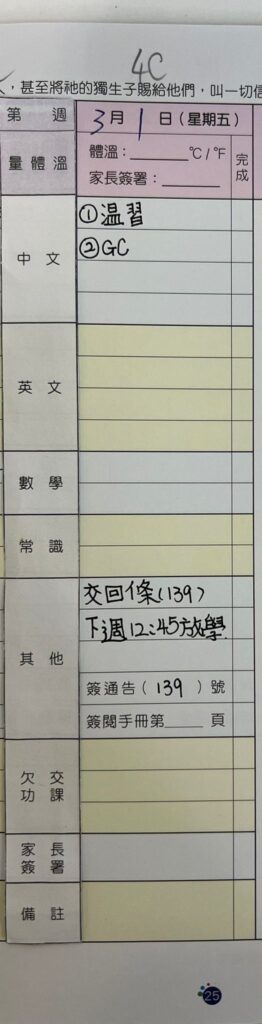 4C
，甚至將祂的獨生子賜給他們，叫一切信
第 週
3月1日（星期五）
量體溫
體溫：______℃/℉
家長簽署：______
完成
中文
①温習
②GC
英文
數學
常識
其他
交回條(139)
下週12:45放學
簽通告（139）號
簽閱手冊第____頁
欠交功課
家長簽署
備註
25